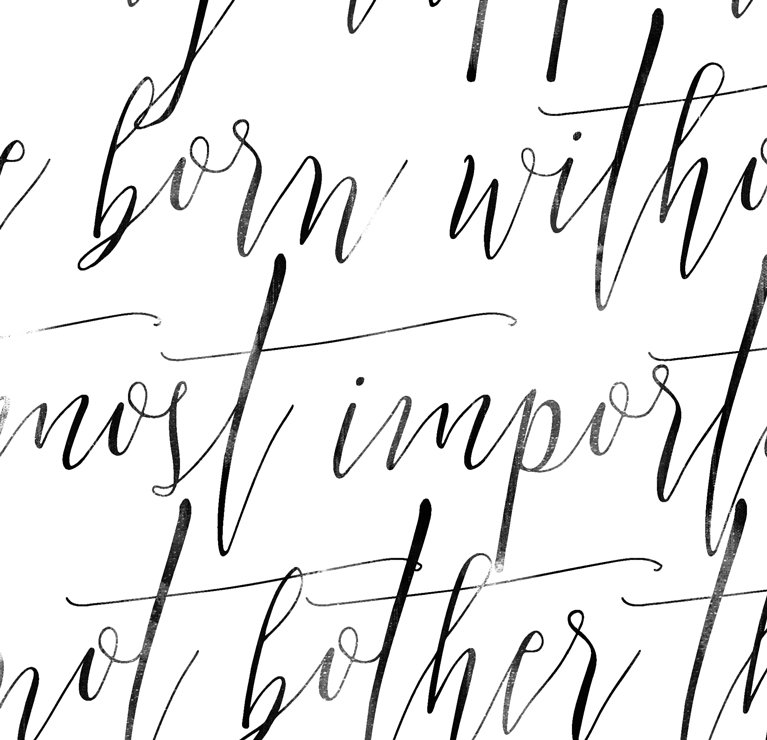 born witho
most import
not bother th